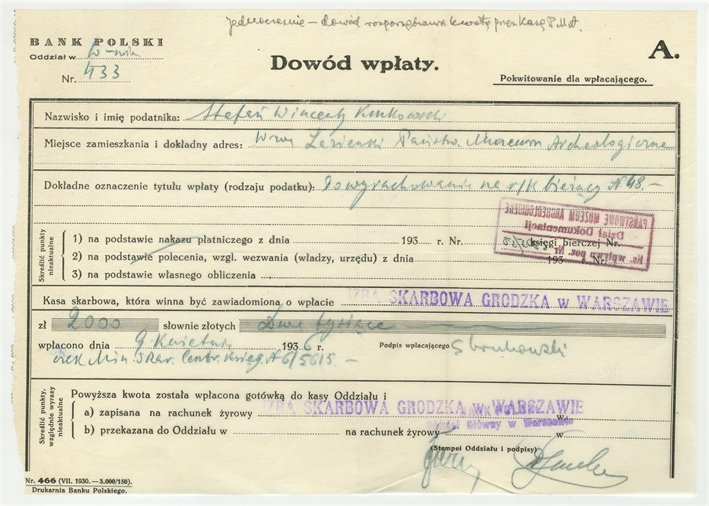 jednocześnie – dowód rozporządzania kwotą przez Kasę P.M.A.
BANK POLSKI
Oddział w W-wie
Nr. 433
Dowód wpłaty.
A.
Pokwitowanie dla wpłacającego.
Nazwisko i imię podatnika: Stefan Wincenty
Miejsce zamieszkania i dokładny adres: W-wa Łazienki Państw. Muzeum Archeologiczne
Dokładne oznaczenie tytułu wpłaty (rodzaju podatku): Do wyrachowania na r/k bieżący № 48.–
PAŃSTWOWE MUZEUM ARCHEOLOGICZNE
Dział Dokumentacji
Ks. wpływu poz. Nr.
Skreślić punkty nieaktualne
1) na podstawie nakazu płatniczego z dnia 193 r. Nr. księgi bierczej Nr.
2) na podstawie polecenia, wzgl. wezwania (władzy, urzędu) z dnia 193 r.
3) na podstawie własnego obliczenia
Kasa skarbowa, która winna być zawiadomiona o wpłacie IZBA SKARBOWA GRODZKA w WARSZAWIE
zł 2000 słownie złotych Dwa tysiące
wpłacono dnia 9 kwietnia 1936 r. Podpis wpłacającego
czek Min. Skar. Centr. Księg. A 6/5615 –
Skreślić punkty, względnie wyrazy nieaktualne
Powyższa kwota została wpłacona gotówką do kasy Oddziału i
a) zapisana na rachunek żyrowy IZBA SKARBOWA GRODZKA w WARSZAWIE w
b) przekazana do Oddziału w na rachunek żyrowy w
BANK POLSKI
Oddział Główny w Warszawie
(Stempel Oddziału i podpisy)
Nr. 466 (VII. 1930. — 3.000/150).
Drukarnia Banku Polskiego.